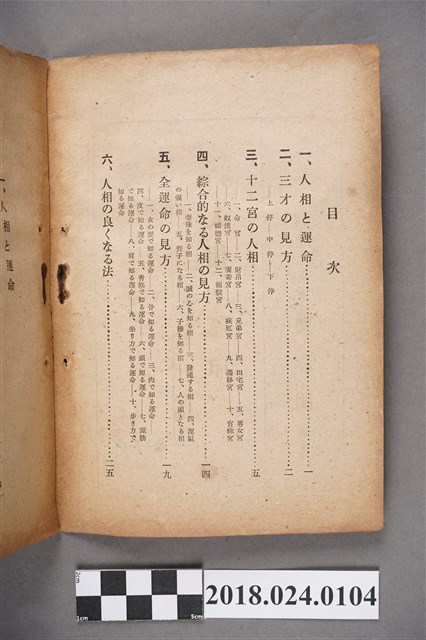 目次
一、人相と運命…一
二、三才の見方…二
上停―中停―下停
三、十二宮の人相…五
一、命宮―二、財帛宮―三、兄弟宮―四、田宅宮―五、男女宮
六、奴僕宮―七、妻妾宮―八、疾厄宮―九、遷移宮―十、官祿宮
十一、福德宮―十二、相貌宮
四、綜合的なる人相の見方…一四
二、誠の心を知る相―三、發達する相―四、運氣
の强い相―五、養子になる相―六、子緣を知る相―七、人の頭となる相
五、全運命の見方…一九
二、骨で知る運命―三、肉で知る運命
四、皮で知る運命―五、靑筋で知る運命―六、頭で知る運命―七、
で知る運命―八、肩で知る運命―九、坐り方で知る運命―十、步き方で
知る運命
六、人相の良くなる法…二五
一、人相と運命
1cm
5cm
2018.024.0104